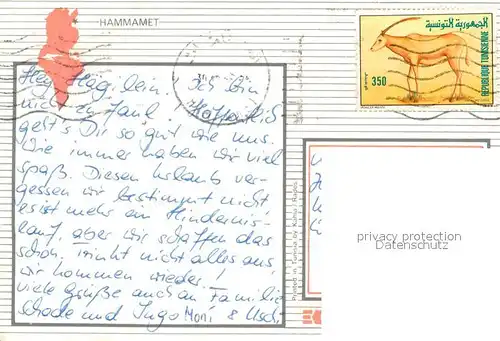 HAMMAMET
الجمهورية التونسية
REPUBLIQUE TUNISIENNE
350
Ich bin
nicht zu faul! Hoffentlich
geht's Dir so gut wie uns.
Wie immer haben wir viel
spaß. Diesen Urlaub ver-
gessen wir bestimmt nicht
es ist mehr ein Hindernis-
lauf, aber wir schaffen das
schon, trinkt nicht alles aus
wir kommen wieder!
viele Grüße auch an Familie
Schade und Ingo Moni & Uschi
privacy protection
Datenschutz